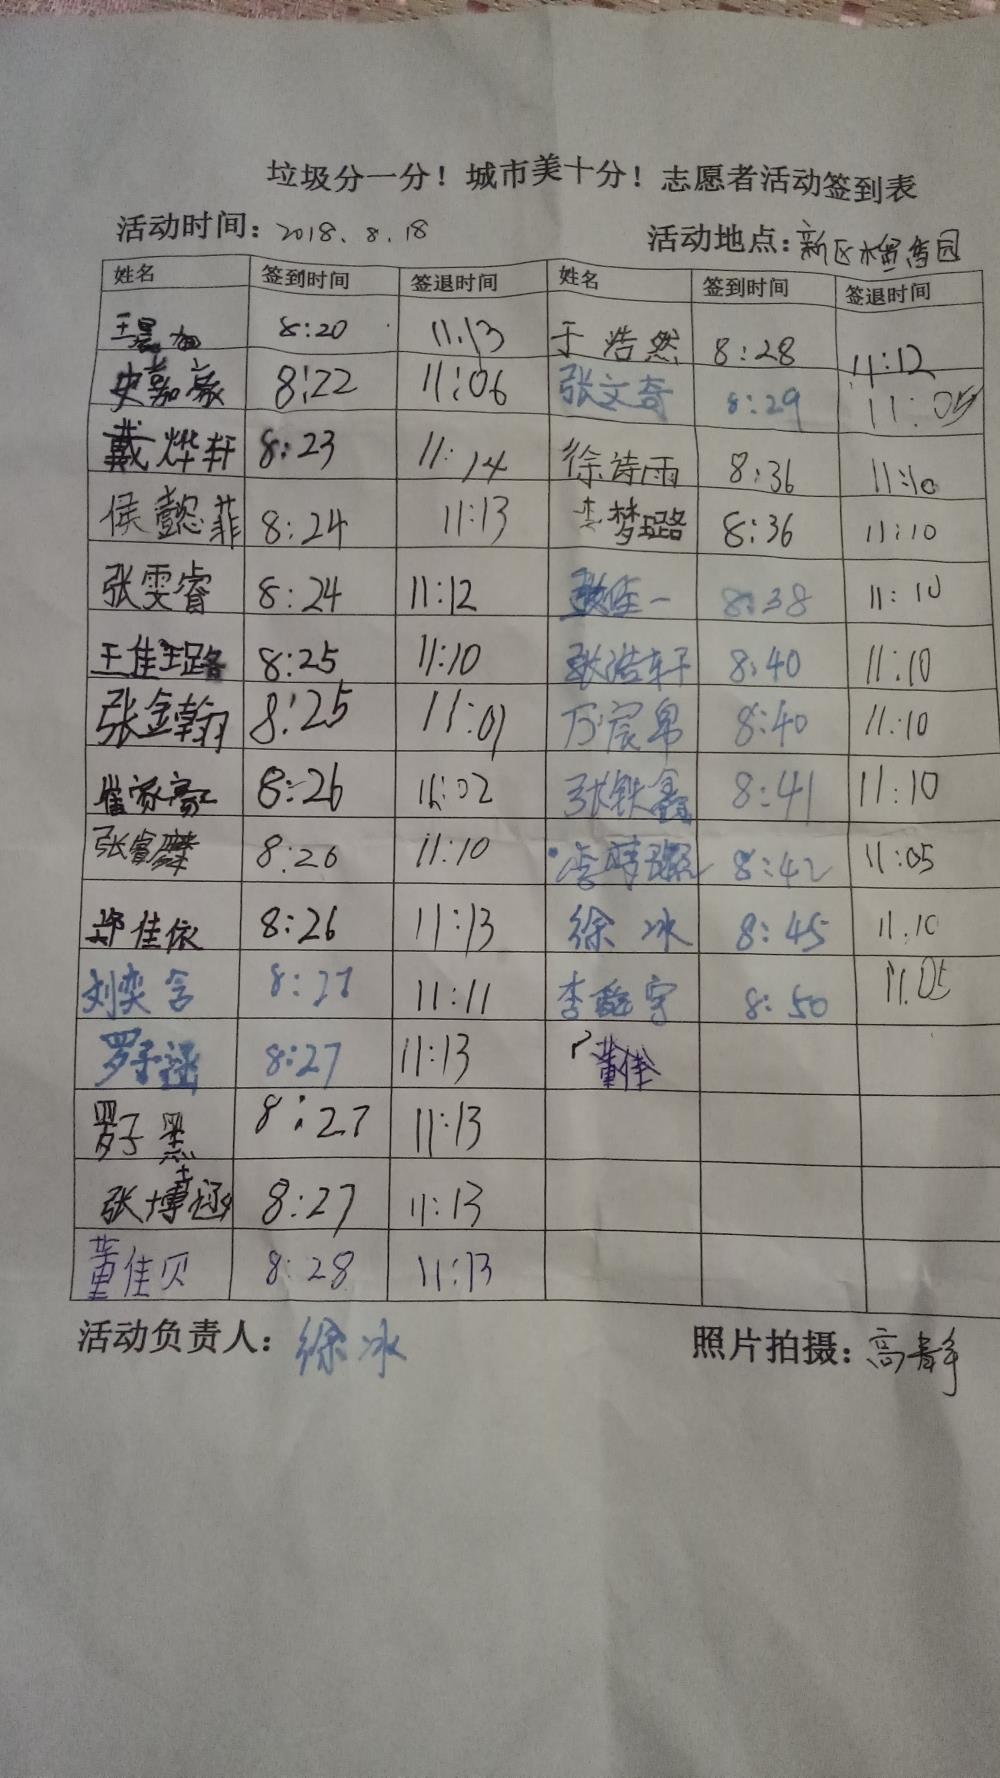 垃圾分一分！城市美十分！志愿者活动签到表
活动时间：2018.8.18 活动地点：新区
姓名 签到时间 签退时间 姓名 签到时间 签退时间
8:20 11.13 于浩然 8:28 11:12
史嘉豪 8:22 11:06 张文奇 8:29 11:05
戴烨轩 8:23 11:14 徐诗雨 8:36 11:10
侯懿菲 8:24 11:13 李梦璐 8:36 11:10
张雯睿 8:24 11:12 张佳一 8:38 11:10
王佳璐 8:25 11:10 张浩轩 8:40 11:10
张金翰 8:25 11:01 万宸帛 8:40 11:10
崔家豪 8:26 11:02 张轶鑫 8:41 11:10
张睿麟 8:26 11:10 李 8:42 11:05
郑佳依 8:26 11:13 徐冰 8:45 11.10
刘奕含 8:27 11:11 李 宇 8:50 11.05
罗子涵 8:27 11:13 董佳
罗子 8:27 11:13
张博涵 8:27 11:13
董佳贝 8:28 11:13
活动负责人：徐冰 照片拍摄：高静